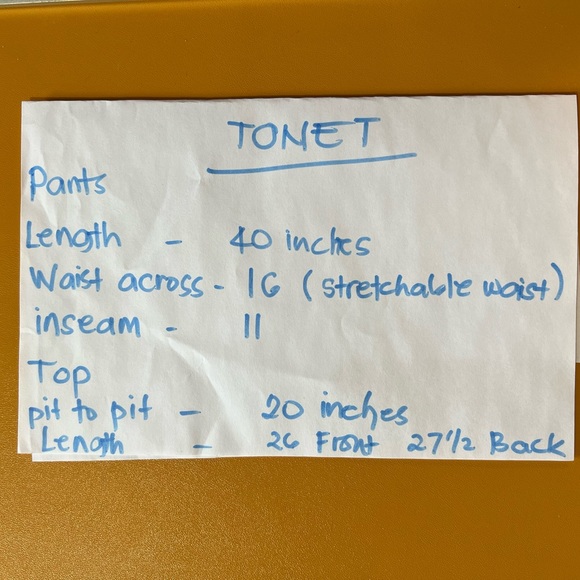 TONET
Pants
Length - 40 inches
Waist across - 16 (stretchable waist)
inseam - 11
Top
pit to pit - 20 inches
Length - 26 Front 27 1/2 Back